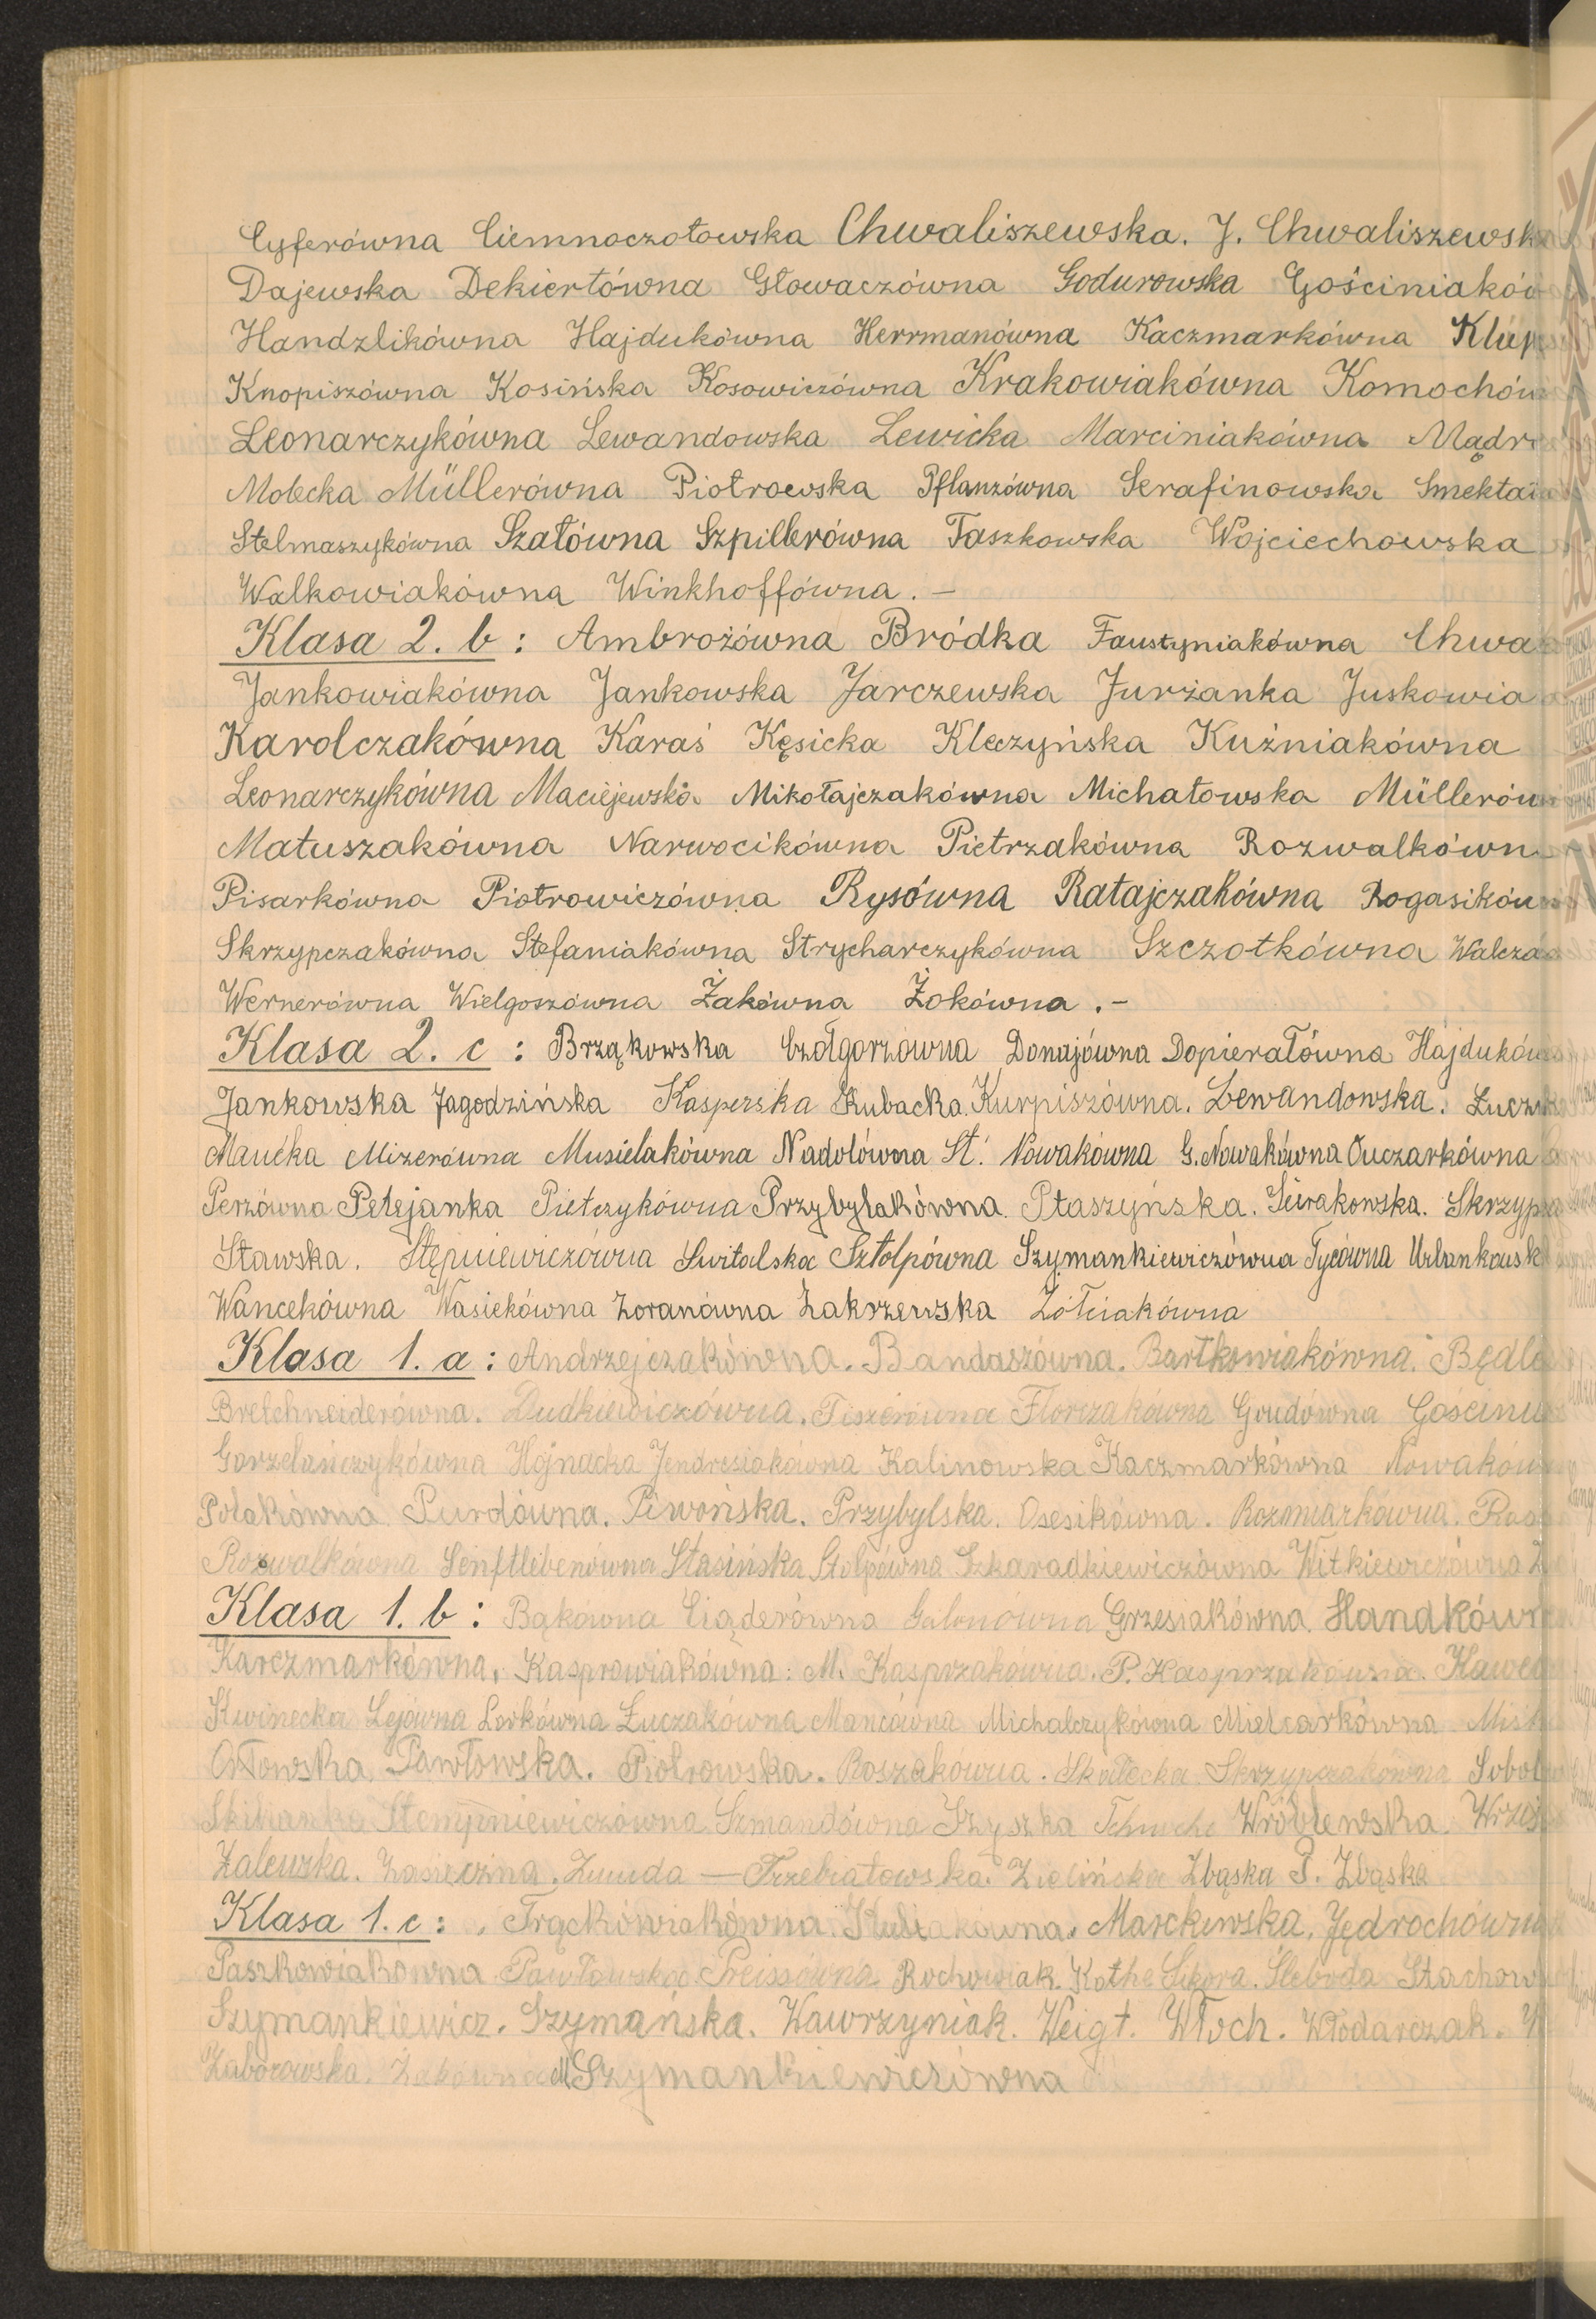 Cyferówna Ciemnoczołowska Chwaliszewska. J. Chwaliszewsk
Dajewska Dekiertówna Głowaczówna Godurowska Gościniaków
Handzlikówna Hajdukówna Herrmanówna Kaczmarkówna Klup
Knopiszówna Kosińska Kosowiczówna Krakowiakówna Komochów
Leonarczykówna Lewandowska Lewicka Marciniakówna Mądr
Molecka Müllerówna Piotrowska Pflanzówna Serafinowska Smekta
Stelmaszykówna Szałówna Szpillerówna Taszkowska Wojciechowska
Walkowiakówna Winkhoffówna. –
Klasa 2. b : Ambrożówna Bródka Faustyniakówna Chwa
Jankowiakówna Jankowska Jarczewska Jurżanka Juskowia
Karolczakówna Karaś Kęsicka Kleczyńska Kuźniakówna
Leonarczykówna Maciejewska Mikołajczakówna Michałowska Müllerów
Matuszakówna Narwocikówna Pietrzakówna Rozwalkówn
Pisarkówna Piotrowiczówna Rysówna Ratajczakówna Rogasików
Skrzypczakówna Stefaniakówna Strycharczykówna Szczotkówna Walcza
Wernerówna Wielgoszówna Żakówna Żokówna . –
Klasa 2. c : Brząkowska Czołgorzówna Donajówna Dopierałówna Hajduków
Jankowska Jagodzińska Kasperska Kubacka. Kurpiszówna. Lewandowska. Łucz
Maućka Mizerówna Musielakówna Nadolówna St. Nowakówna G. Nowakówna Owczarkówna
Perzówna Petejanka Pietrzykówna Przybylakówna Ptaszyńska. Sierakowska. Skrzyp
Stawska. Stępniewiczówna Świtalska Sztolpówna Szymankiewiczówna Tycówna Urbankowsk
Wancekówna Wasiekówna Zoranówna Zakrzewska Żółciakówna
Klasa 1. a : Andrzejczakówna. Bandaszówna. Bartkowiakówna. Będle
Bretchneiderówna. Dudkiewiczówna. Fiszerówna Florczakówna Goudówna Gościnn
Gorzelańczykówna Hojnacka Jendresiakówna Kalinowska Kaczmarkówna Nowaków
Polakówna Purdówna. Piwońska. Przybylska. Osesikówna. Rozmiarkówna.
Rozwalkówna Senftlebenówna Stasińska Stolpówna Szkaradkiewiczówna Witkiewiczówna
Klasa 1. b : Bąkówna Ciąderówna Galonówna Grzesiakówna. Handkówn
Karczmarkówna. Kasprowiakówna. M. Kasprzakówna. P. Kasprzakówna. Kawec
Kwinecka Lejówna Lorkówna Łuczakówna Mancówna Michalczykówna Mielcarkówna
Orłowska Pawłowska. Piotrowska. Roszakówna. Skałecka Skrzypczakówna Sobol
Stempniewiczówna Szmandówna Szyszka Wróblewska. Wrześ
Zalewska. Zmuda — Trzebiatowska. Zielińska Zbąska P. Zbąska
Klasa 1. c : Frąckowiakówna. Marckiewska. Jędrochówn
Paszkowiakówna Pawłowska. Preissówna Rochowiak. Kothe Sikora. Śleboda Stachow
Szymankiewicz. Szymańska. Wawrzyniak. Weigt. Włoch. Włodarczak.
Zaborowska. Żakówna M. Szymankiewiczówna